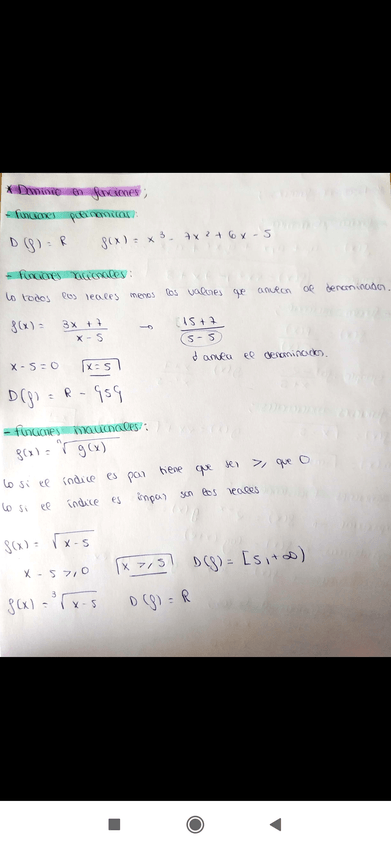 * Dominio en funciones;
- Funciones polinómicas:
D(f) = R f(x) = x³ - 7x² + 6x - 5
- Funciones racionales:
↳ todos los reales menos los valores que anulan al denominador.
f(x) = 3x + 7 / x - 5 → 15 + 7 / 5 - 5
↓ anula el denominador.
x - 5 = 0 x = 5
D(f) = R - {5}
- Funciones irracionales:
f(x) = ⁿ√g(x)
↳ si el índice es par tiene que ser ≥ que 0
↳ si el índice es impar son los reales
f(x) = √x - 5
x - 5 ≥ 0 x ≥ 5 D(f) = [5, +∞)
f(x) = ³√x - 5 D(f) = R